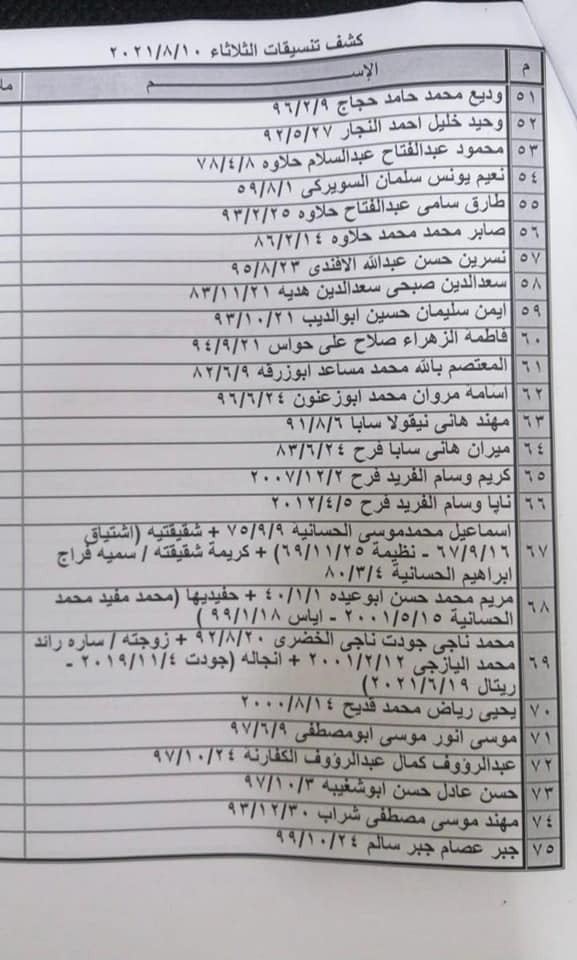 كشف تنسيقات الثلاثاء ٢٠٢١/٨/١٠
م الإســـــم
٥١ وديع محمد حامد حجاج ٩٦/٢/٩
٥٢ وحيد خليل احمد النجار ٩٢/٥/٢٧
٥٣ محمود عبدالفتاح عبدالسلام حلاوه ٧٨/٤/٨
٥٤ نعيم يونس سلمان السويركى ٥٩/٨/١
٥٥ طارق سامى عبدالفتاح حلاوه ٩٣/٢/٢٥
٥٦ صابر محمد محمد حلاوه ٨٦/٢/١٤
٥٧ نسرين حسن عبدالله الافندى ٩٥/٨/٢٣
٥٨ سعدالدين صبحى سعدالدين هديه ٨٣/١١/٢١
٥٩ ايمن سليمان حسين ابوالديب ٩٣/١٠/٢١
٦٠ فاطمه الزهراء صلاح على حواس ٩٤/٩/٢١
٦١ المعتصم بالله محمد مساعد ابوزرقه ٨٢/٦/٩
٦٢ اسامة مروان محمد ابوزعنون ٩٦/٦/٢٤
٦٣ مهند هانى نيقولا سابا ٩١/٨/٦
٦٤ ميران هانى سابا فرح ٨٣/٦/٢٤
٦٥ كريم وسام الفريد فرح ٢٠٠٧/١٢/٢
٦٦ نايا وسام الفريد فرح ٢٠١٢/٤/٥
اسماعيل محمدموسى الحسانية ٧٥/٩/٩ + شقيقتيه (اشتياق
٦٧ ٦٧/٩/١٦ - نظيمة ٦٩/١١/٢٥) + كريمة شقيقته / سميه فراج
ابراهيم الحسانية ٨٠/٣/٤
٦٨ مريم محمد حسن ابوعيده ٤٠/١/١ + حفيديها (محمد مفيد محمد
الحسانية ٢٠٠١/٥/١٥ - اياس ٩٩/١/١٨ )
محمد ناجى جودت ناجى الخضرى ٩٢/٨/٢٠ + زوجته / ساره رائد
٦٩ محمد اليازجى ٢٠٠١/٢/١٢ + انجاله (جودت ٢٠١٩/١١/٤ -
ريتال ٢٠٢١/٦/١٩)
٧٠ يحيى رياض محمد قديح ٢٠٠٠/٨/١٤
٧١ موسى انور موسى ابومصطفى ٩٧/٦/٩
٧٢ عبدالرؤوف كمال عبدالرؤوف الكفارنه ٩٧/١٠/٢٤
٧٣ حسن عادل حسن ابوشغيبه ٩٧/١٠/٣
٧٤ مهند موسى مصطفى شراب ٩٣/١٢/٣٠
٧٥ جبر عصام جبر سالم ٩٩/١٠/٢٤